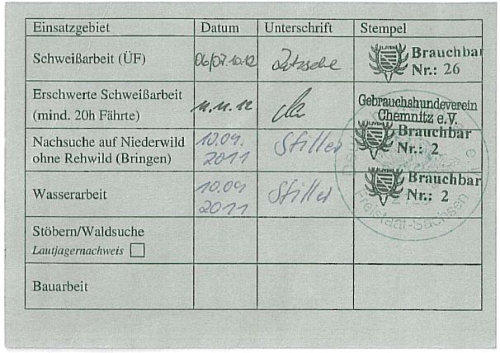 Einsatzgebiet Datum Unterschrift Stempel
Schweißarbeit (ÜF) 06/07.10.12 Brauchbar
Nr.: 26
Erschwerte Schweißarbeit
(mind. 20h Fährte) 11.11.12 Gebrauchshundeverein
Chemnitz e.V.
Nachsuche auf Niederwild
ohne Rehwild (Bringen) 10.09.
2011 Stiller Brauchbar
Nr.: 2
Wasserarbeit 10.09
2011 Stiller Brauchbar
Nr.: 2
Freistaat Sachsen
Stöbern/Waldsuche
Lautjagernachweis
Bauarbeit